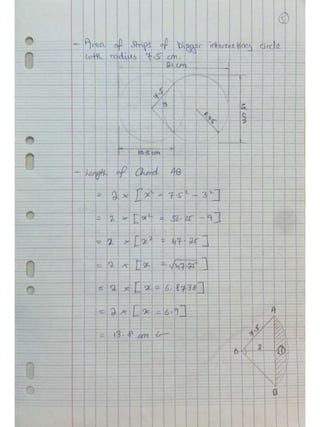 5
- Area of strips of bigger intersecting circle
with radius 7.5 cm.
21 cm
7.5
3
15 cm
10.5 cm
- Length of Chord AB
= 2 × [x² = 7.5² - 3²]
= 2 × [x² = 56.25 - 9]
= 2 × [x² = 47.25]
= 2 × [x = √47.25]
= 2 × [x = 6.8738]
= 2 × [x = 6.9]
= 13.8 cm
A
7.5
O
3
B